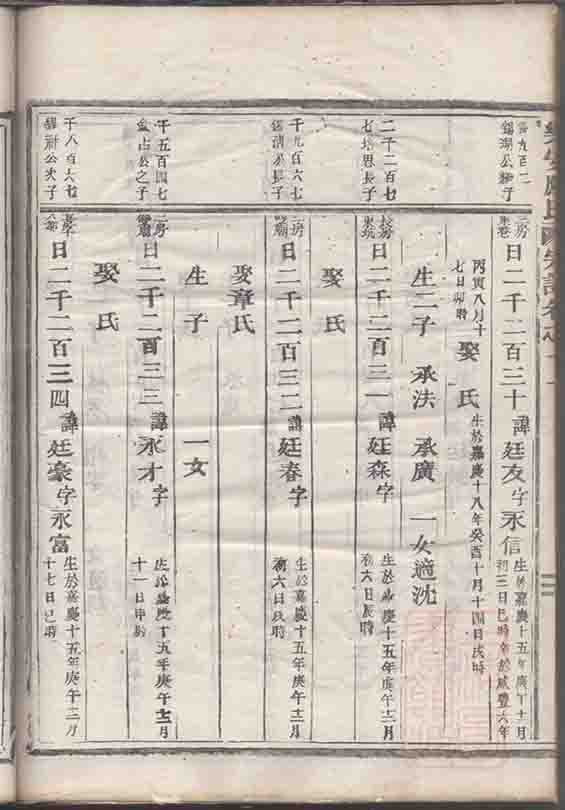 日二千二百三十 諱廷友字永信 生於嘉慶十五年庚午十一月
初三日巳時卒於咸豐六年
丙寅八月十
七日卯時
娶 氏 生於嘉慶十八年癸酉十月十四日戌時
生二子 承法 承廣 一女適沈
二千二百七
七培恩長子
日二千二百三一 諱廷森字 生於嘉慶十五年庚午十二月
初六日辰時
娶 氏
千九百六七
三房
日二千二百三二 諱廷春字 生於嘉慶十五年庚午十二月
初六日戌時
娶章氏
生 子 一女
千五百四七
金占公之子
三房
日二千二百三三 諱永才字 生於嘉慶十五年庚午十二月
十一日申時
娶 氏
千八百六七
日二千二百三四 諱廷豪字永富 生於嘉慶十五年庚午十二月
十七日巳時